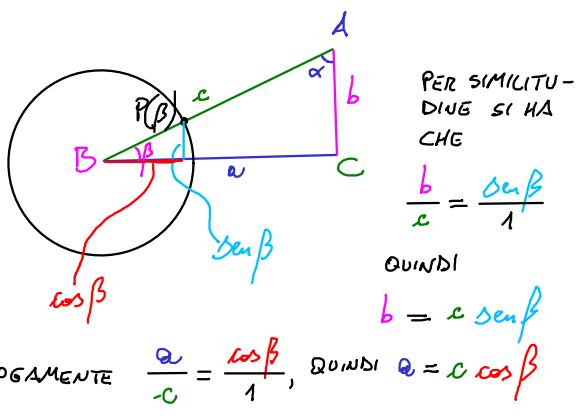 A
α
c
P(β)
b
B
β
C
a
sen β
cos β
PER SIMILITU-
DINE SI HA
CHE
b/c = sen β/1
QUINDI
b = c sen β
OGAMENTE a/c = cos β/1, QUINDI a = c cos β